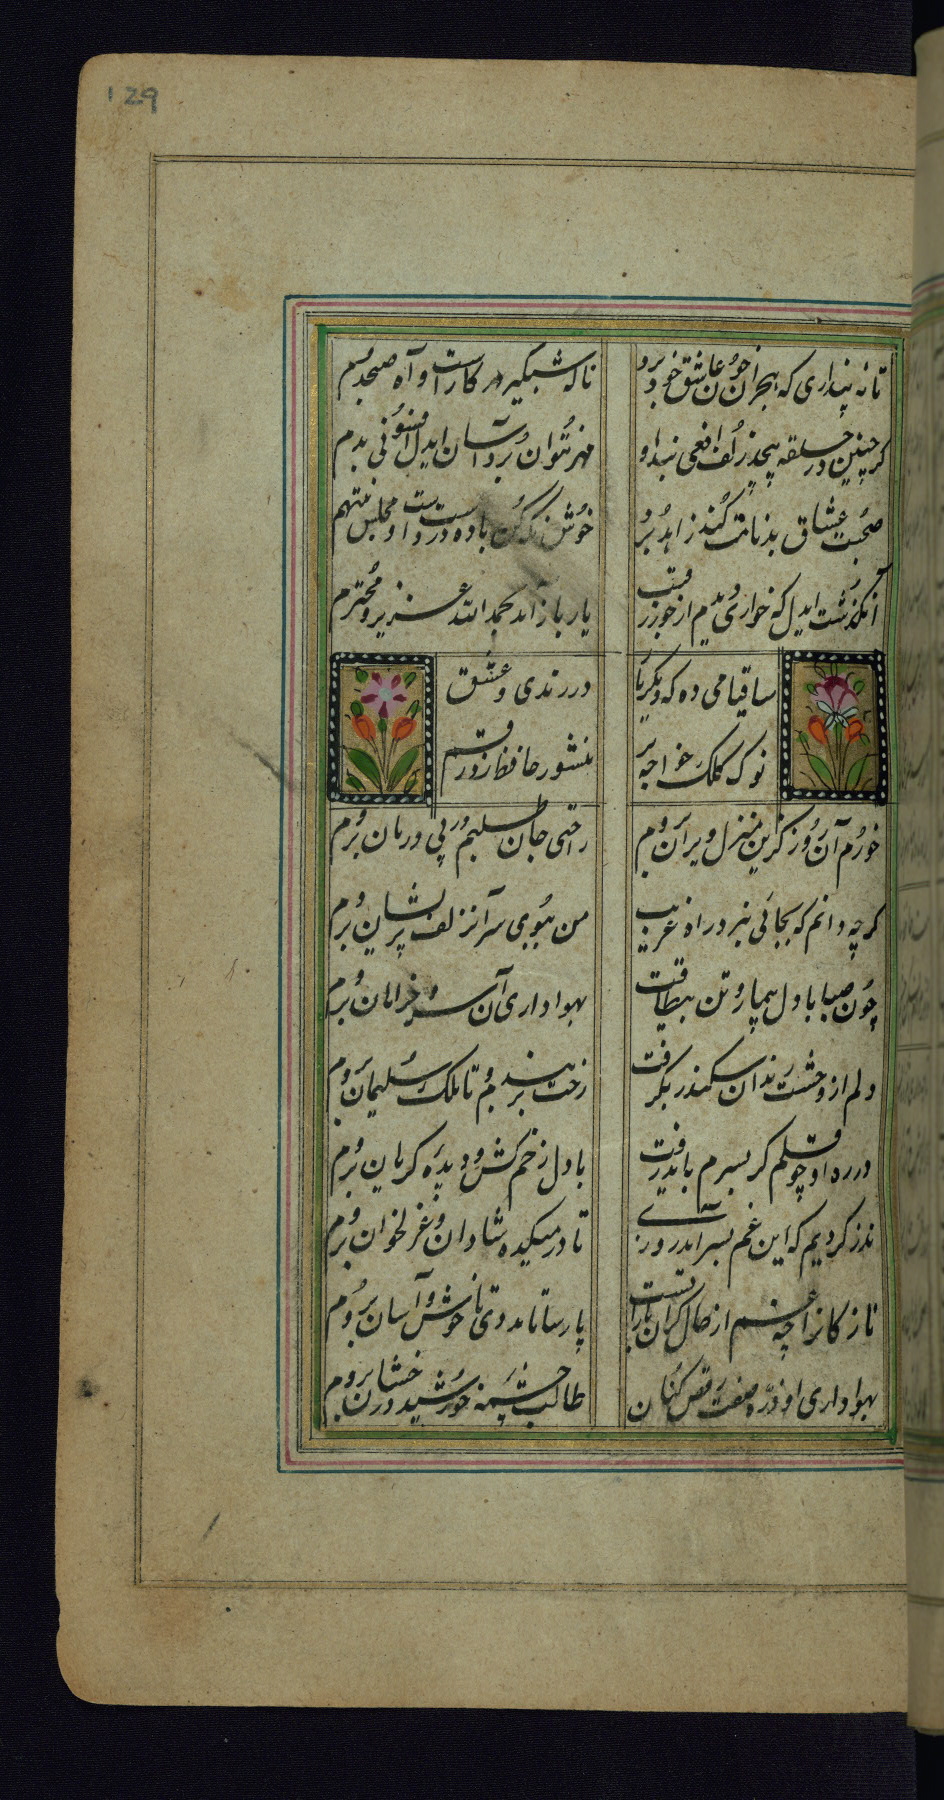 129
تا نه پنداری که هجران خون عاشق خورد و برد ناله شبگیر در کار است و آه صبحدم
کر چنین در حلقه پیچد زلف افعی بند او مهر نتوان برد آسان ایدل افسونی بدم
صحبت عشاق بدنامت کند زاهد برو خوش باده در دست و مجلس متهم
آنکذشت ایدل که خواری دیدم از جور رقیب یار باز آمد بحمد الله عزیز و محترم
ساقیا می ده که دیگر با در رندی و عشق
نوک کلک خواجه بر منشور حافظ زد رقم
خورم آن روز کزین منزل ویران بروم راحتی جان طلبم در پی درمان بروم
کرچه دانم که بجائی نبرد راه غریب من ببوی سر آن زلف پریشان بروم
چون صبا با دل بیمار و تن بیطاقت بهواداری آن سرو خرامان بروم
دلم از وحشت زندان سکندر بکرفت رخت بربندم و تا ملک سلیمان بروم
در ره او چو قلم کر بسرم باید رفت با دل زخم کش و دیده کریان بروم
نذر کردیم که این غم بسر آید روزی تا در میکده شادان و غزلخوان بروم
نازکانرا چه غم از حال کران باران است پارسا تا مددی تا خوش و آسان بروم
بهواداری او ذره صفت رقص کنان طالب چشمه خورشید درخشان بروم